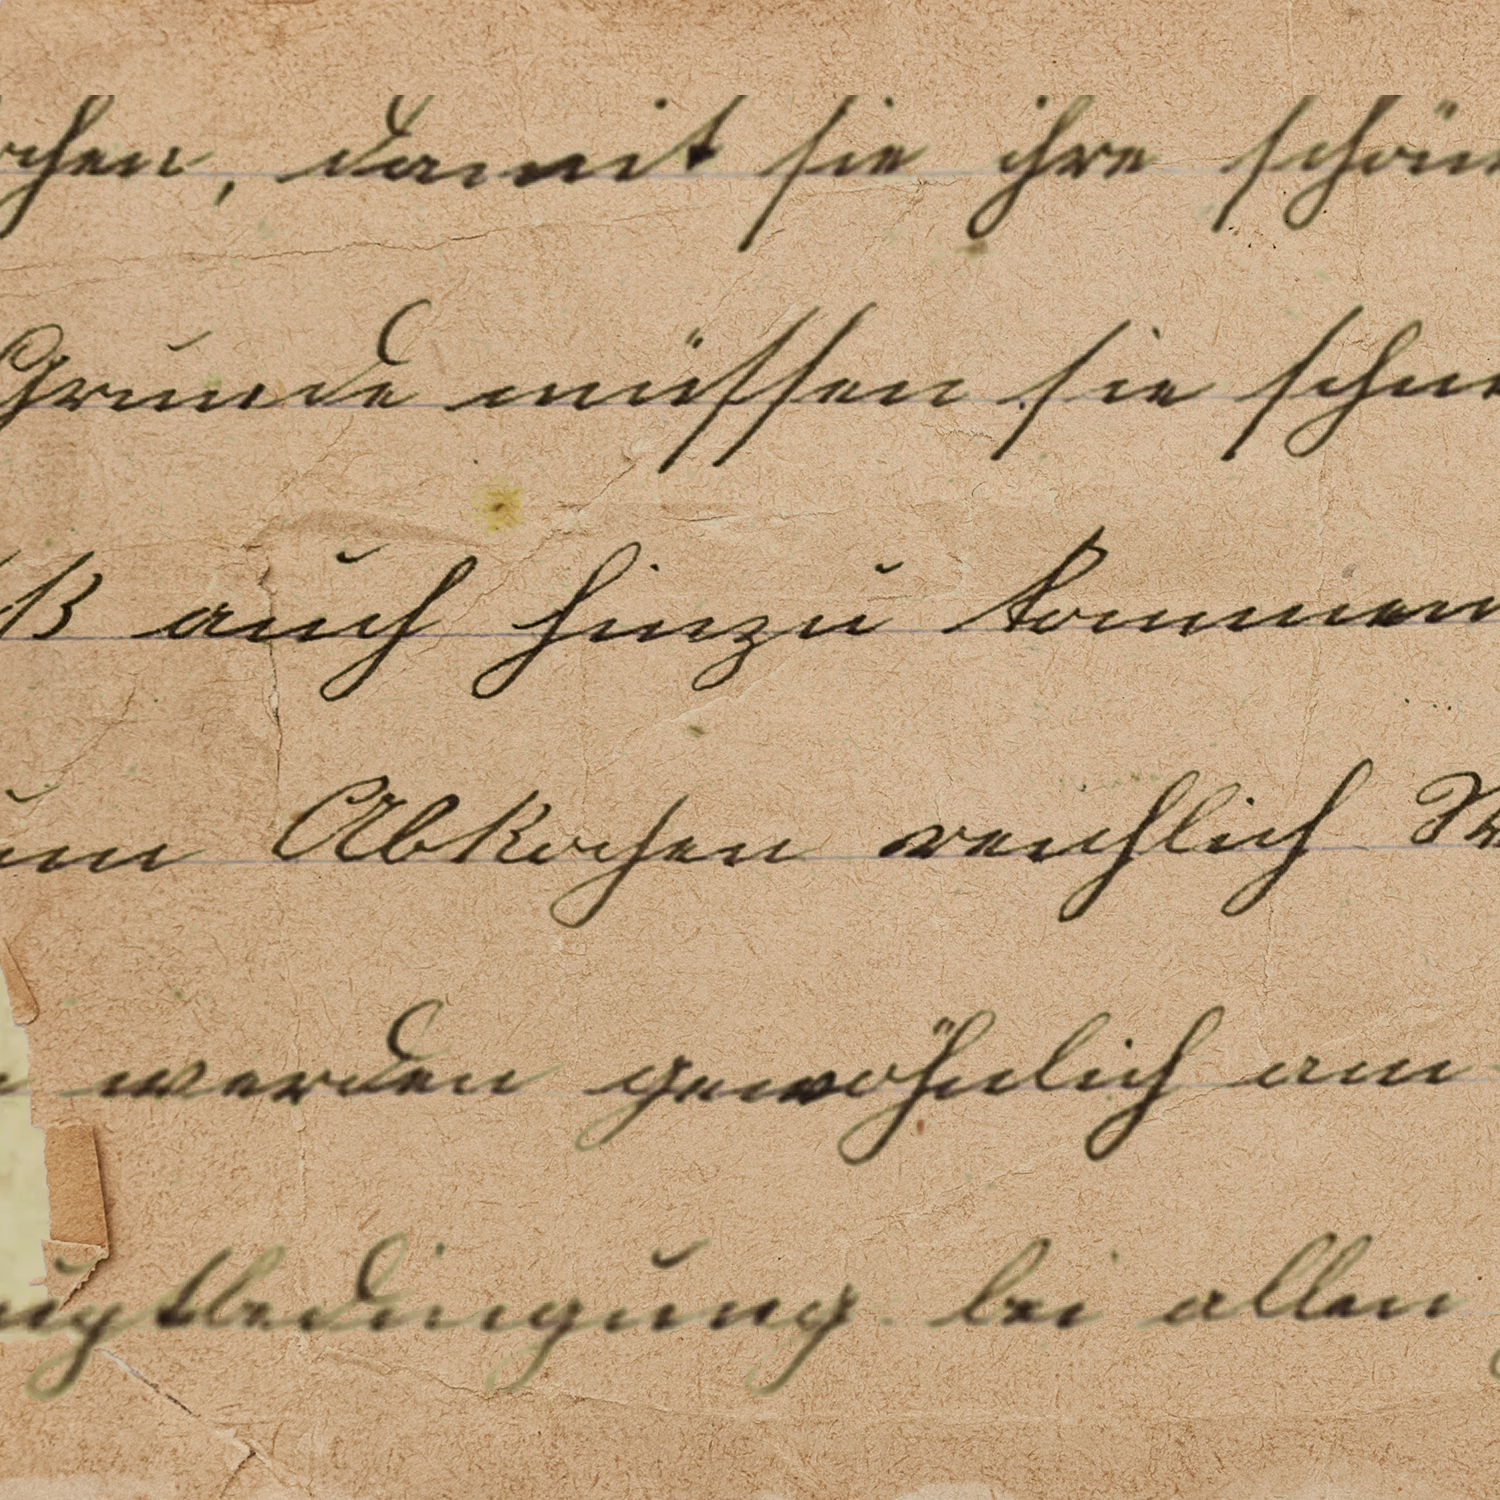 chen, damit sie ihre schön
Grunde müssen sie schn
ß auch hinzu kommen
um Abkochen reichlich W
werden gewöhnlich am
uptbedingung bei allen